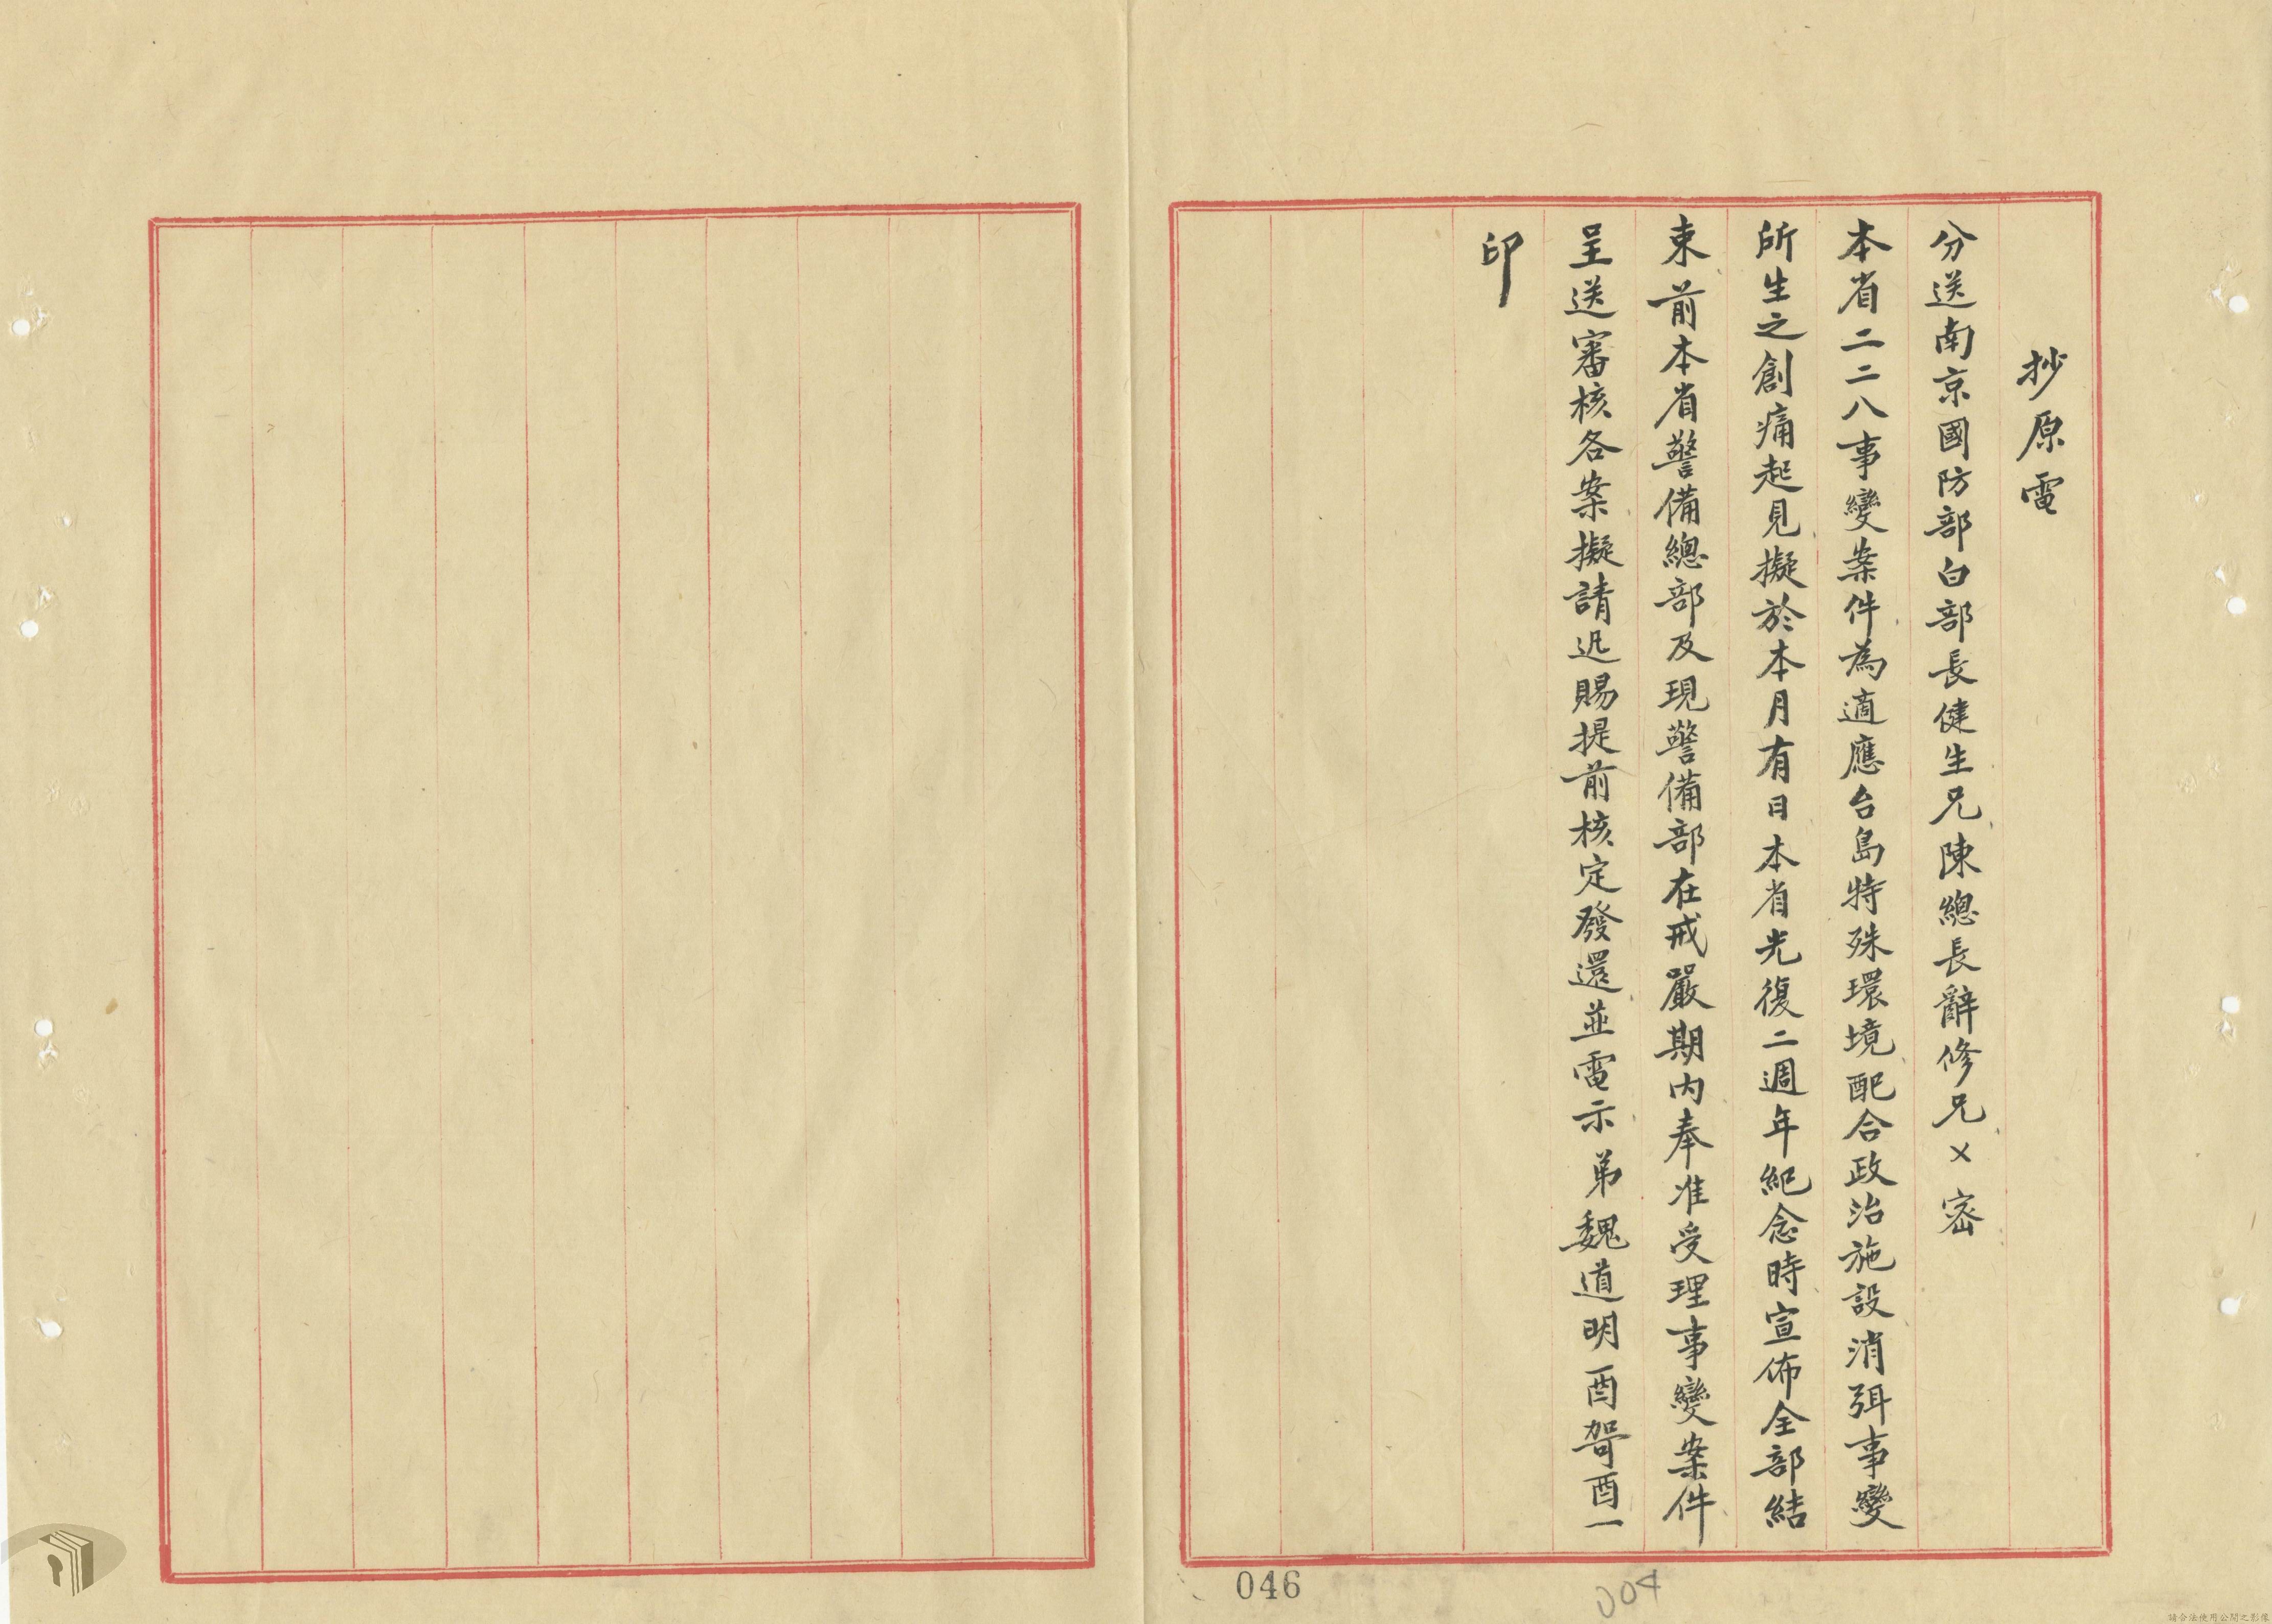 抄原電
分送南京國防部白部長健生兄、陳總長辭修兄、×密
本省二二八事變案件、為適應台島特殊環境、配合政治施設消弭事變
所生之創痛起見、擬於本月有日本省光復二週年紀念時宣佈全部結
束、前本省警備總部及現警備部在戒嚴期內奉准受理事變案件
呈送審核各案、擬請迅賜提前核定發還、並電示、弟魏道明酉哿酉一
印
046
004
請合法使用公開之影像